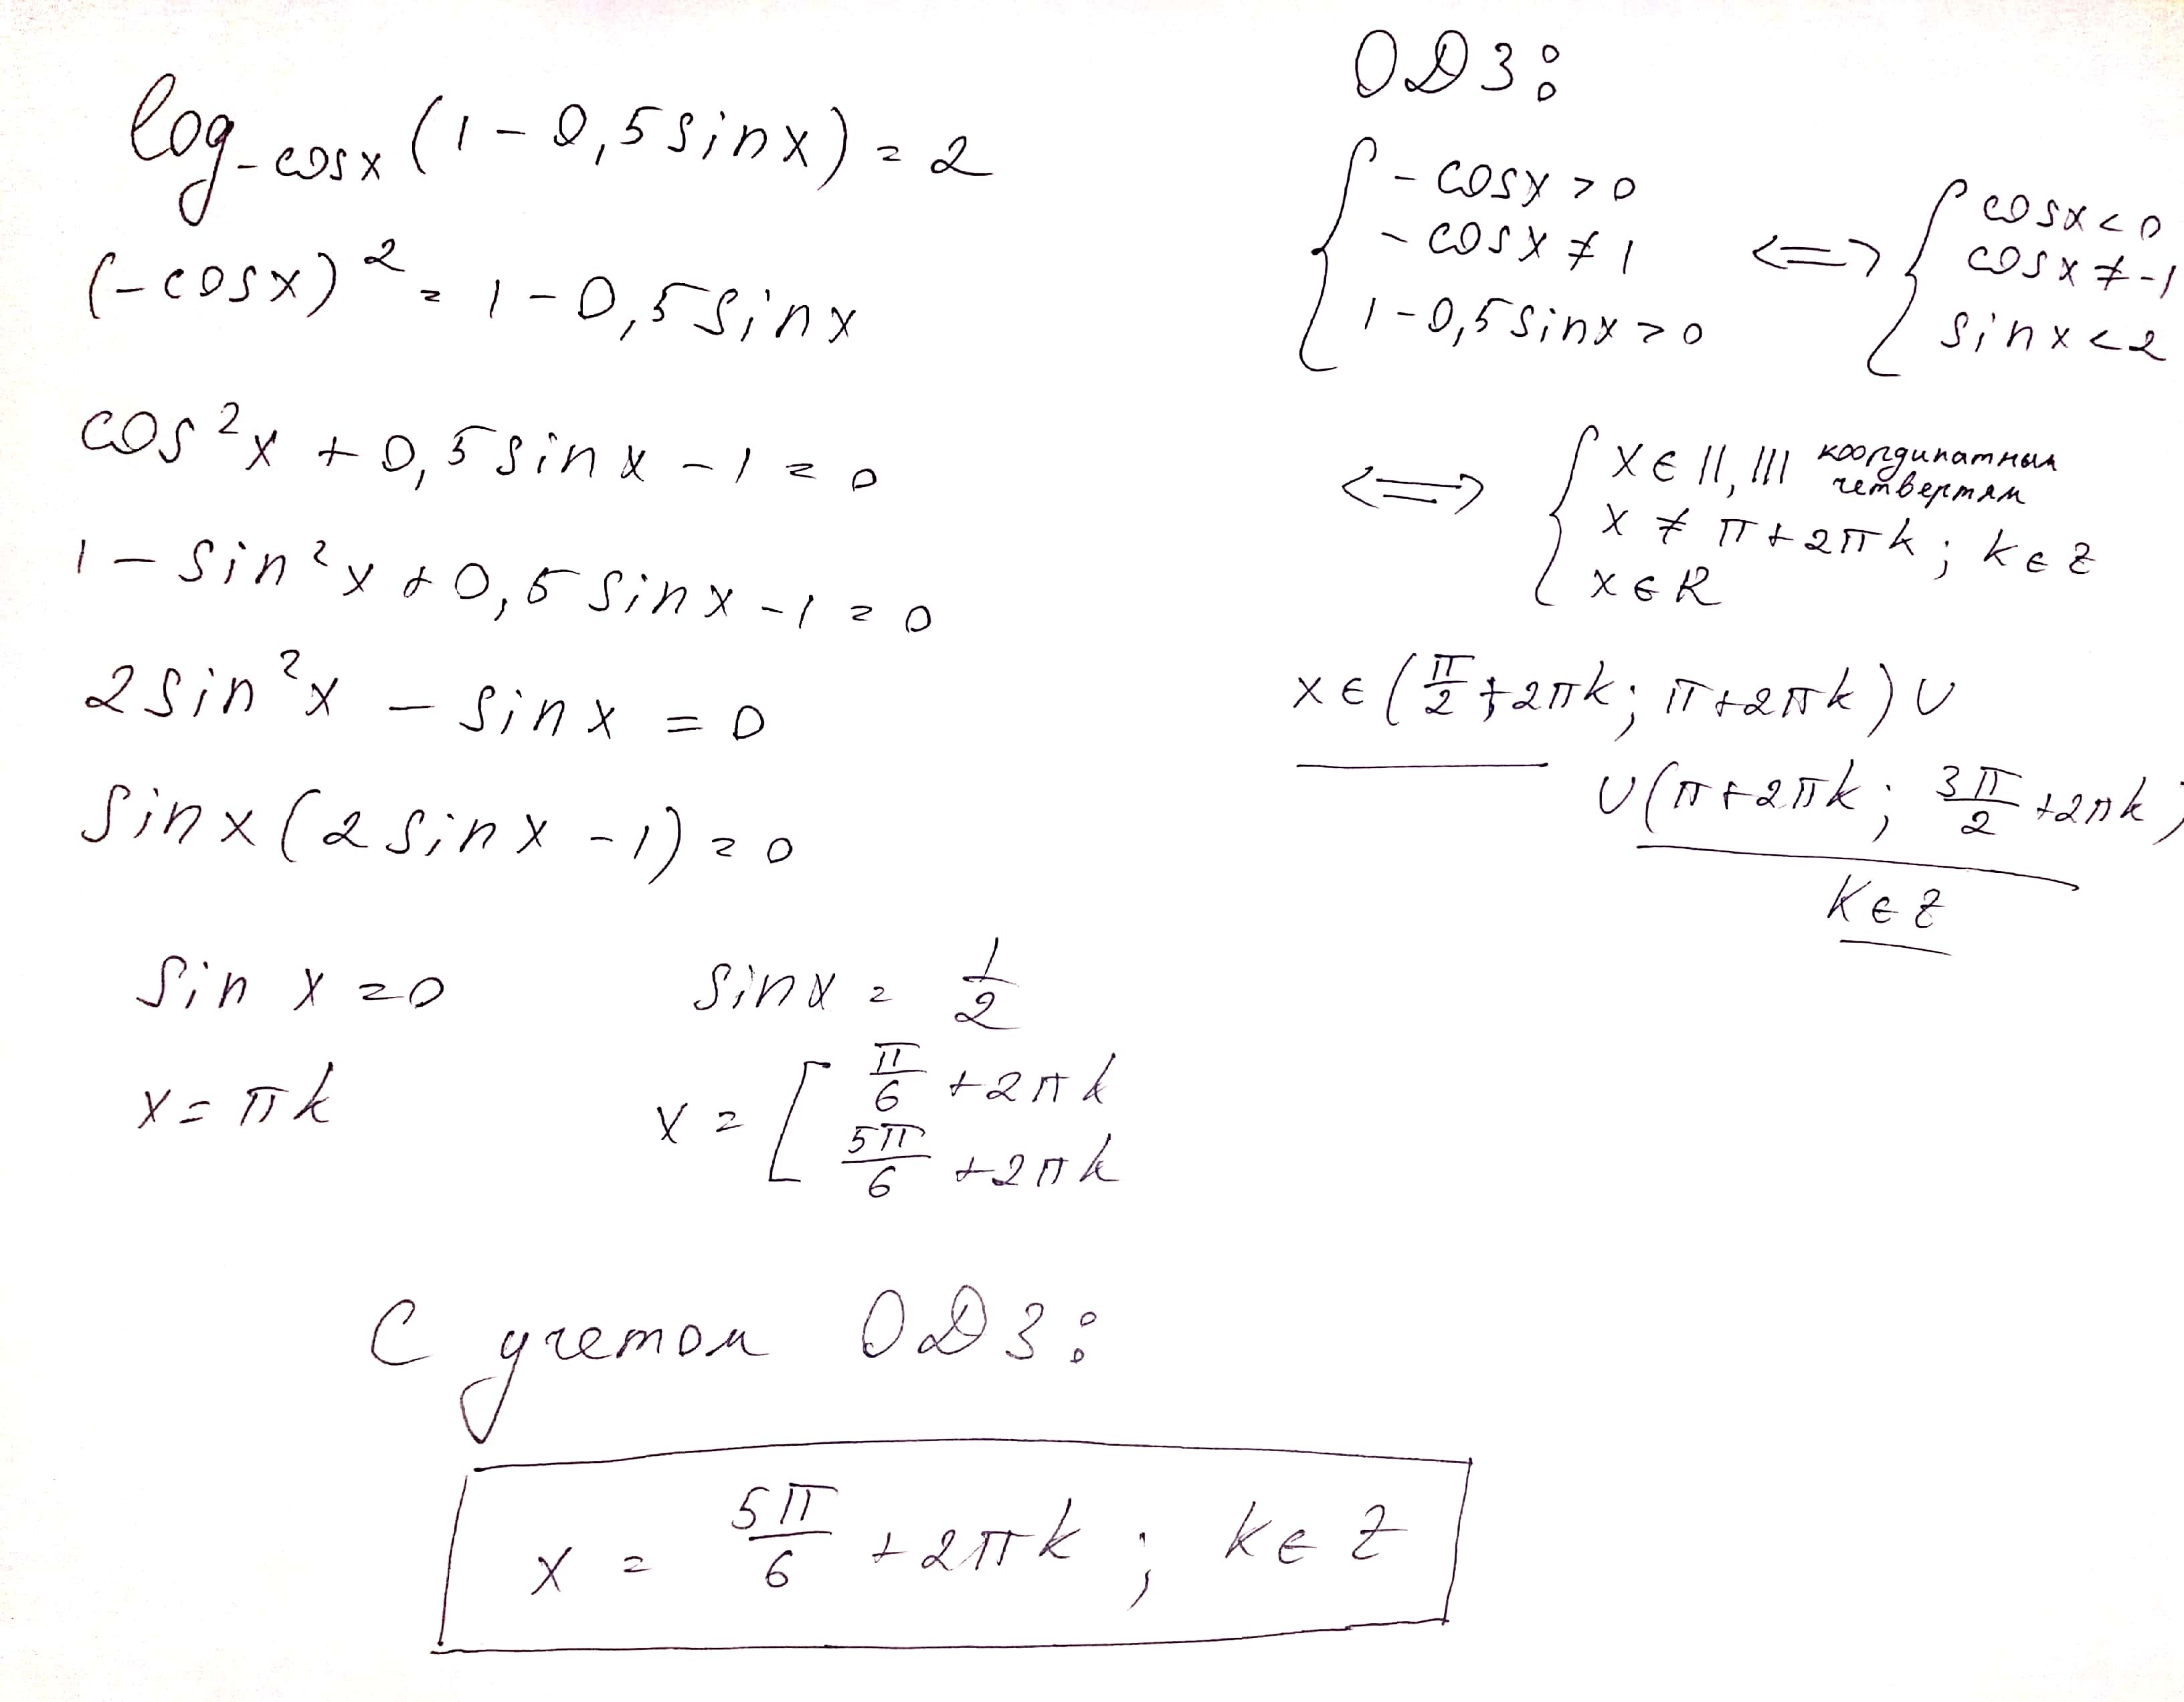 log₋cosx (1-0,5sinx)=2
(-cosx)²=1-0,5sinx
cos²x+0,5sinx-1=0
1-sin²x+0,5sinx-1=0
2sin²x-sinx=0
sinx(2sinx-1)=0
sin x=0
x=πk
sinx=1/2
x=[ π/6+2πk
5π/6+2πk
ОДЗ:
{ -cosx>0
-cosx≠1
1-0,5sinx>0
<=> { cosx<0
cosx≠-1
sinx<2
<=> { x∈II,III координатным
четвертям
x≠π+2πk; k∈Z
x∈R
x∈(π/2+2πk; π+2πk)∪
∪(π+2πk; 3π/2+2πk)
k∈Z
С учетом ОДЗ:
x=5π/6+2πk; k∈Z